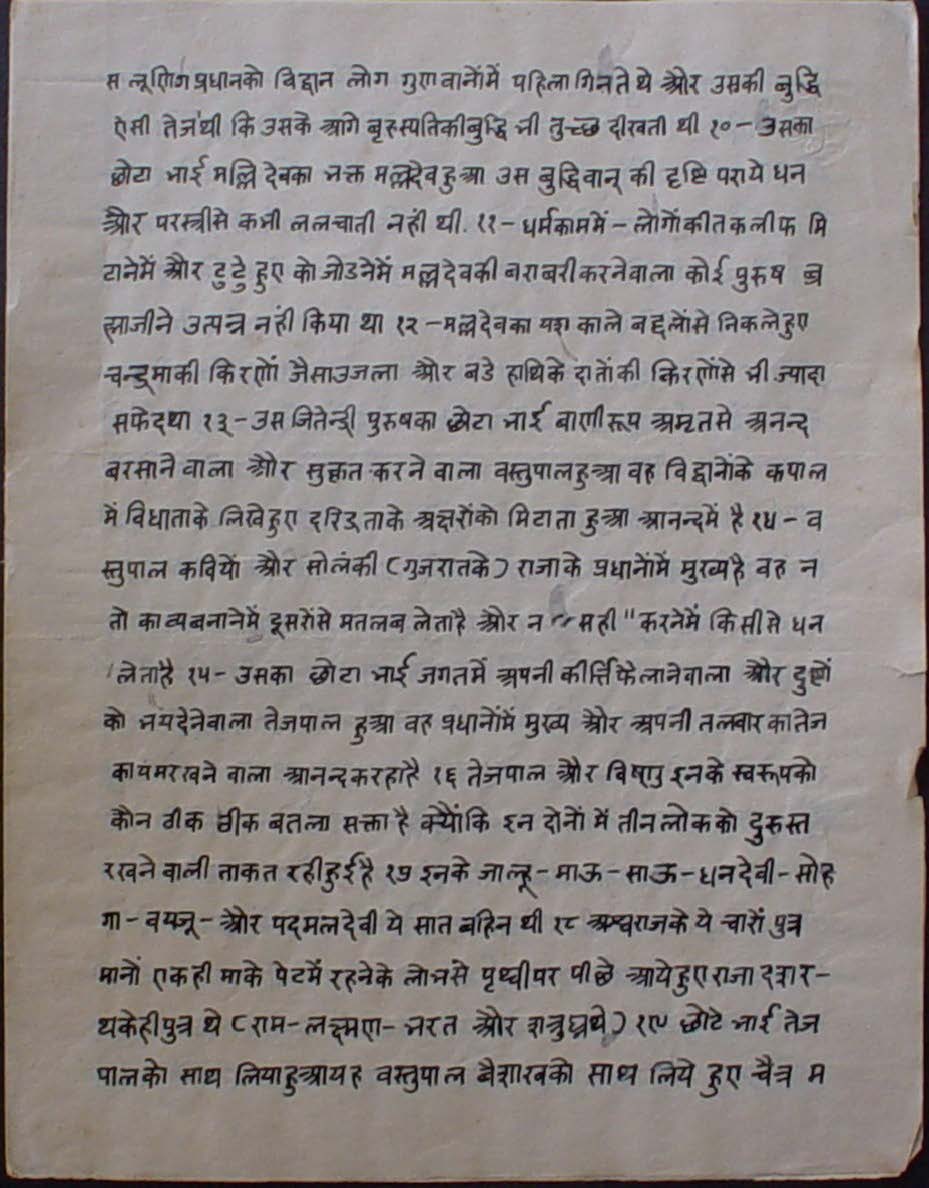 स लूणिग प्रधानको विद्वान लोग गुणवानोंमें पहिला गिनते थे और उसकी बुद्धि
ऐसी तेज थी कि उसके आगे बृहस्पतिकी बुद्धि भी तुच्छ दीखती थी १०- उसका
छोटा भाई मल्लि देवका भक्त मल्लदेव हुआ उस बुद्धिवान् की दृष्टि पराये धन
और परस्त्रीसे कभी ललचाती नहीं थी. ११- धर्मकाममें - लोगोंकी तकलीफ मि
टानेमें और टुटे हुए को जोडनेमें मल्लदेवकी बराबरी करनेवाला कोई पुरुष ब्र
ह्माजीने उत्पन्न नहीं किया था १२ - मल्लदेवका यश काले बद्दलोंसे निकले हुए
चन्द्रमाकी किरणों जैसा उजला और बडे हाथिके दातोंकी किरणोंसे भी ज्यादा
सफेद था १३- उस जितेन्द्री पुरुषका छोटा भाई बाणीरूप अमृतसे अनन्द
बरसाने वाला और सुकृत करने वाला वस्तुपाल हुआ वह विद्वानोंके कपाल
में विधाताके लिखे हुए दरिद्रताके अक्षरोंको मिटाता हुआ आनन्दमें है १४ - व
स्तुपाल कवियों और सोलंकी (गुजरातके) राजाके प्रधानोंमें मुख्य है वह न
तो काव्य बनानेमें दूसरोंसे मतलब लेता है और न " सही " करनेमें किसीसे धन
लेता है १५- उसका छोटा भाई जगतमें अपनी कीर्त्ति फेलानेवाला और दुष्टों
को भय देनेवाला तेजपाल हुआ वह प्रधानोंमें मुख्य और अपनी तलवार का तेज
कायम रखने वाला आनन्द कर रहा है १६ तेजपाल और विष्णु इनके स्वरूपको
कौन ठीक ठीक बतला सक्ता है क्योंकि इन दोनों में तीन लोक को दुरुस्त
रखने वाली ताकत रही हुई है १७ इनके जाल्हू - माऊ - साऊ - धनदेवी - सोह
गा - वयजू - और पदमलदेवी ये सात बहिन थी १८ अश्वराजके ये चारों पुत्र
मानों एक ही माके पेटमें रहनेके लोभसे पृथ्वीपर पीछे आये हुए राजा दशर -
थके ही पुत्र थे (राम - लक्ष्मण - भरत और शत्रुघ्न थे) १९ छोटे भाई तेज
पालको साथ लिया हुआ यह वस्तुपाल बैशाखको साथ लिये हुए चैत्र म